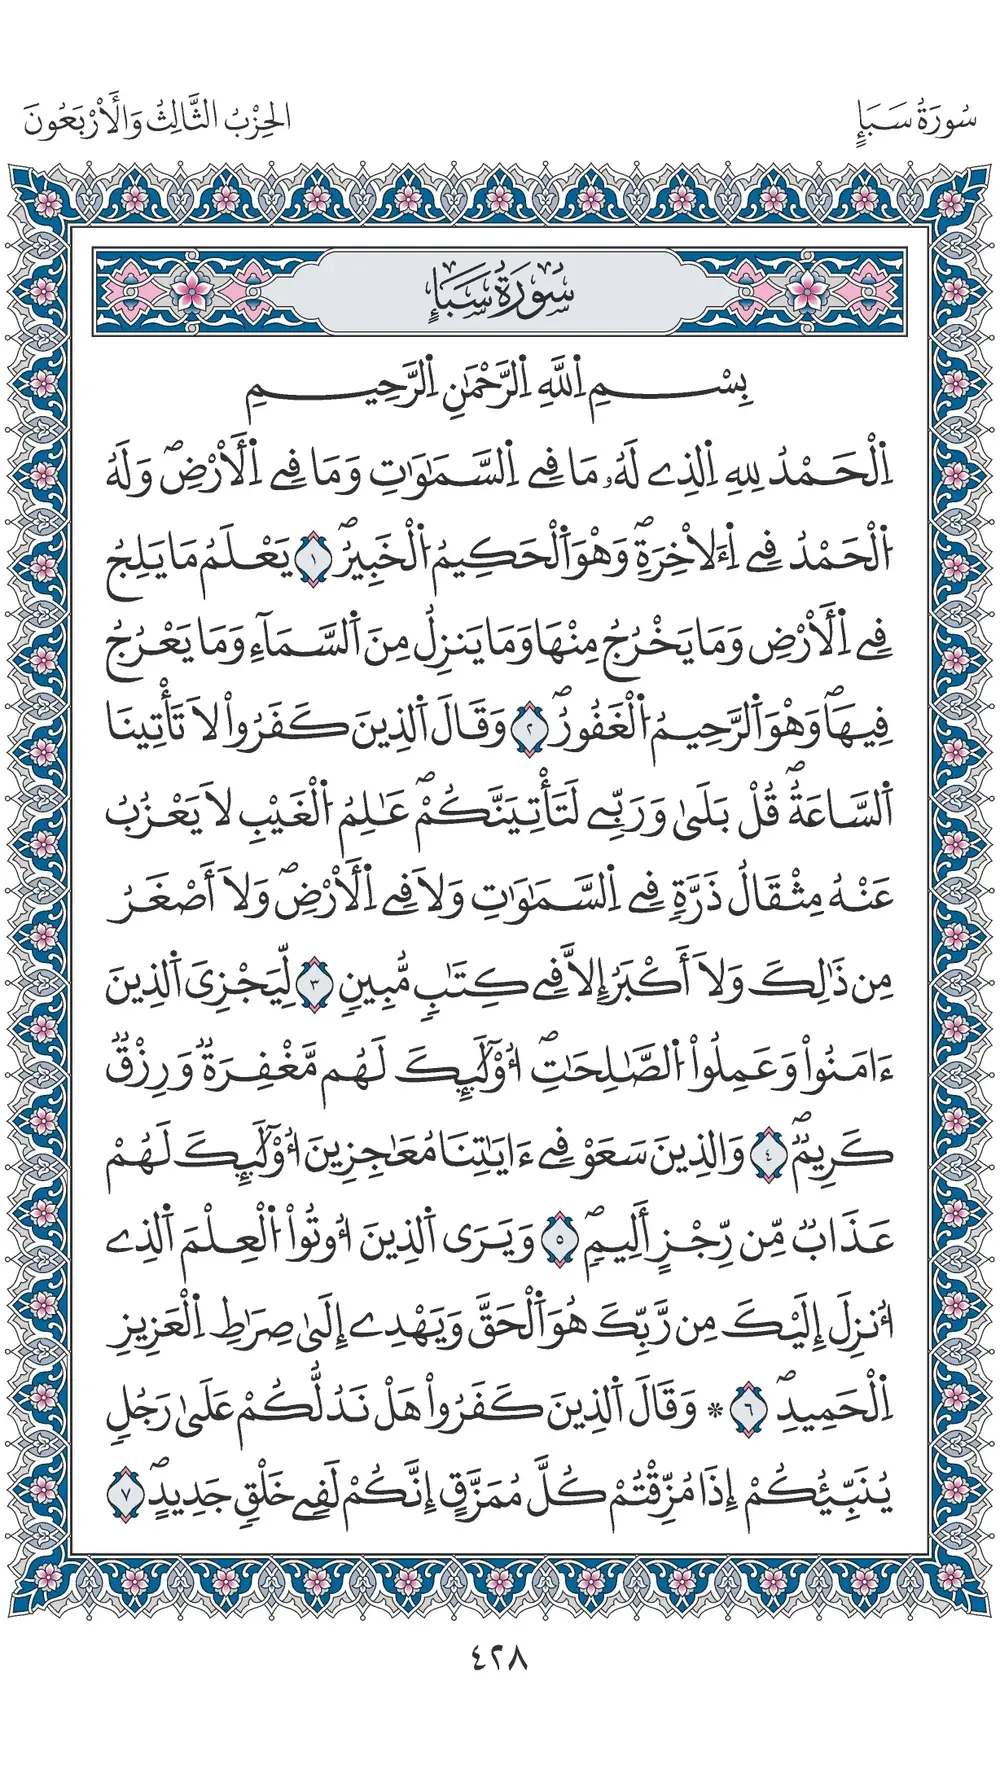 سُورَةُ سَبَإٍ
الحِزْبُ الثَّالِثُ وَالَأرْبَعُونَ
سُورَةُ سَبَإٍ
بِسْمِ اِ۬للَّهِ اِ۬لرَّحْمَٰنِ اِ۬لرَّحِيمِ
اِ۬لْحَمْدُ لِلهِ اِ۬لذِے لَهُۥ مَا فِے اِ۬لسَّمَٰوَٰتِ وَمَا فِے اِ۬لَارْضِۖ وَلَهُ
اُ۬لْحَمْدُ فِے اِ۬لَاخِرَةِۖ وَهْوَ اَ۬لْحَكِيمُ اُ۬لْخَبِيرُۖ ١ يَعْلَمُ مَا يَلِجُ
فِے اِ۬لَارْضِ وَمَا يَخْرُجُ مِنْهَا وَمَا يَنزِلُ مِنَ اَ۬لسَّمَآءِ وَمَا يَعْرُجُ
فِيهَاۖ وَهْوَ اَ۬لرَّحِيمُ اُ۬لْغَفُورُۖ ٢ وَقَالَ اَ۬لذِينَ كَفَرُواْ لَا تَأْتِينَا
اَ۬لسَّاعَةُۖ قُلْ بَلَىٰ وَرَبِّے لَتَأْتِيَنَّكُمْۖ عَٰلِمُ اُ۬لْغَيْبِ لَا يَعْزُبُ
عَنْهُ مِثْقَالُ ذَرَّةٖ فِے اِ۬لسَّمَٰوَٰتِ وَلَا فِے اِ۬لَارْضِۖ وَلَا أَصْغَرُ
مِن ذَٰلِكَ وَلَا أَكْبَرُ إِلَّا فِے كِتَٰبٖ مُّبِينٖ ٣ لِّيَجْزِىَ اَ۬لذِينَ
ءَامَنُواْ وَعَمِلُواْ اُ۬لصَّٰلِحَٰتِۖ أُوْلَٰٓئِكَ لَهُم مَّغْفِرَةٞ وَرِزْقٞ
كَرِيمٞۖ ٤ وَالذِينَ سَعَوْ فِےٓ ءَايَٰتِنَا مُعَٰجِزِينَ أُوْلَٰٓئِكَ لَهُمْ
عَذَابٞ مِّن رِّجْزٍ أَلِيمٖۖ ٥ وَيَرَى اَ۬لذِينَ أُوتُواْ اُ۬لْعِلْمَ اَ۬لذِے
أُنزِلَ إِلَيْكَ مِن رَّبِّكَ هُوَ اَ۬لْحَقَّ وَيَهْدِے إِلَىٰ صِرَٰطِ اِ۬لْعَزِيزِ
اِ۬لْحَمِيدِۖ ٦ * وَقَالَ اَ۬لذِينَ كَفَرُواْ هَلْ نَدُلُّكُمْ عَلَىٰ رَجُلٖ
يُنَبِّئُكُمْ إِذَا مُزِّقْتُمْ كُلَّ مُمَزَّقٍ إِنَّكُمْ لَفِے خَلْقٖ جَدِيدٍۖ ٧
٤٢٨